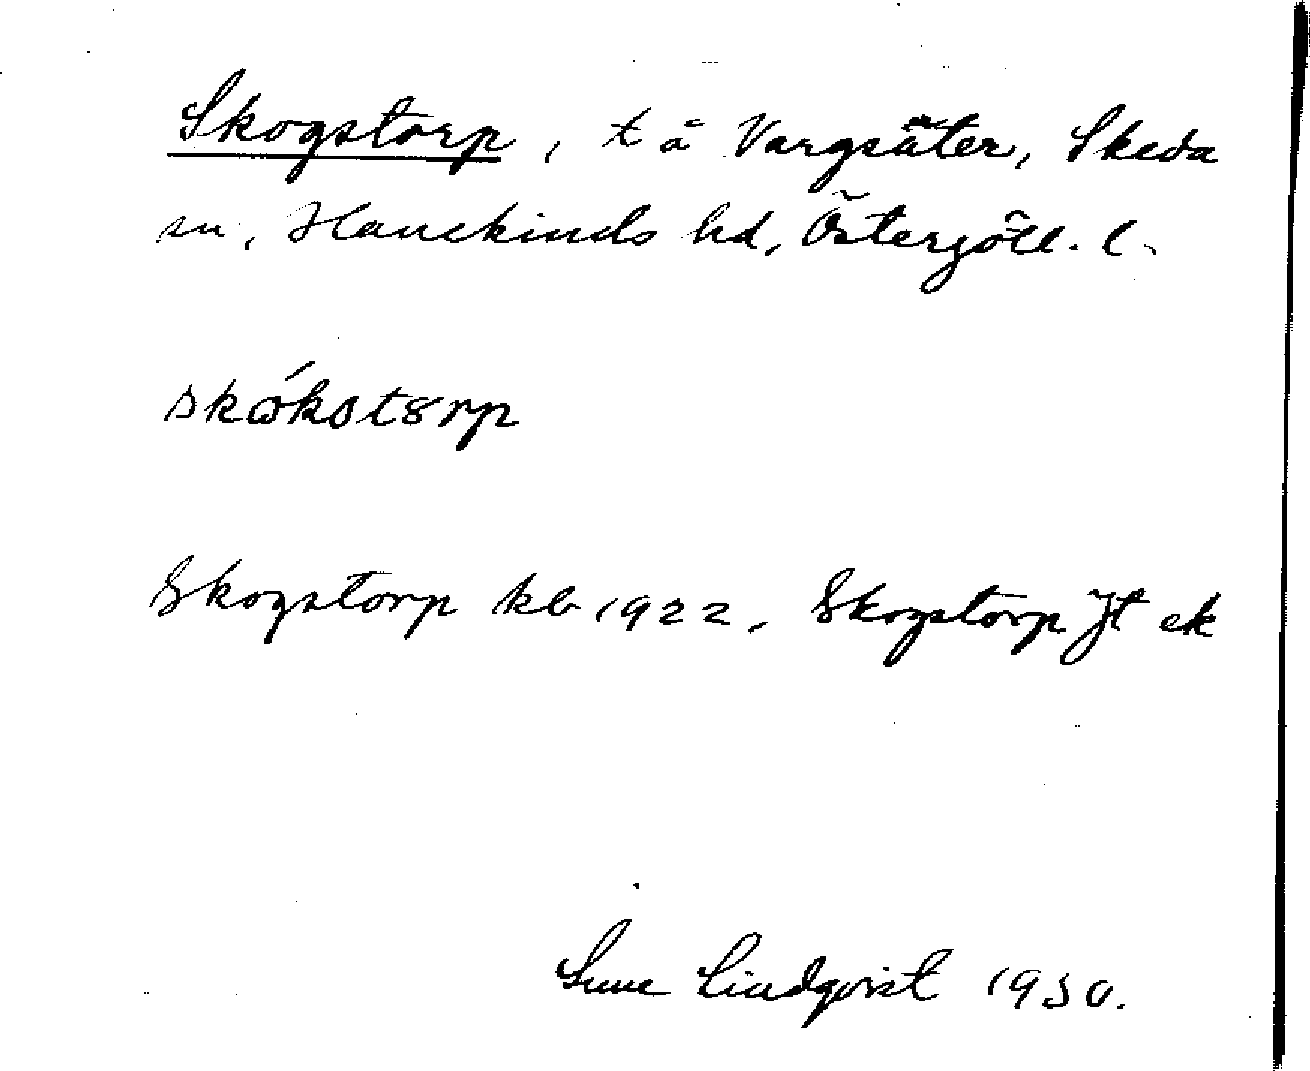 Skogstorp, t å Vargsäter, Skeda
sn, Hanekinds hd, Östergötl. l.
skɷ́kstȣrp
Skogstorp kb 1922, Skogstorp Jt ek
Sune Lindqvist 1930.